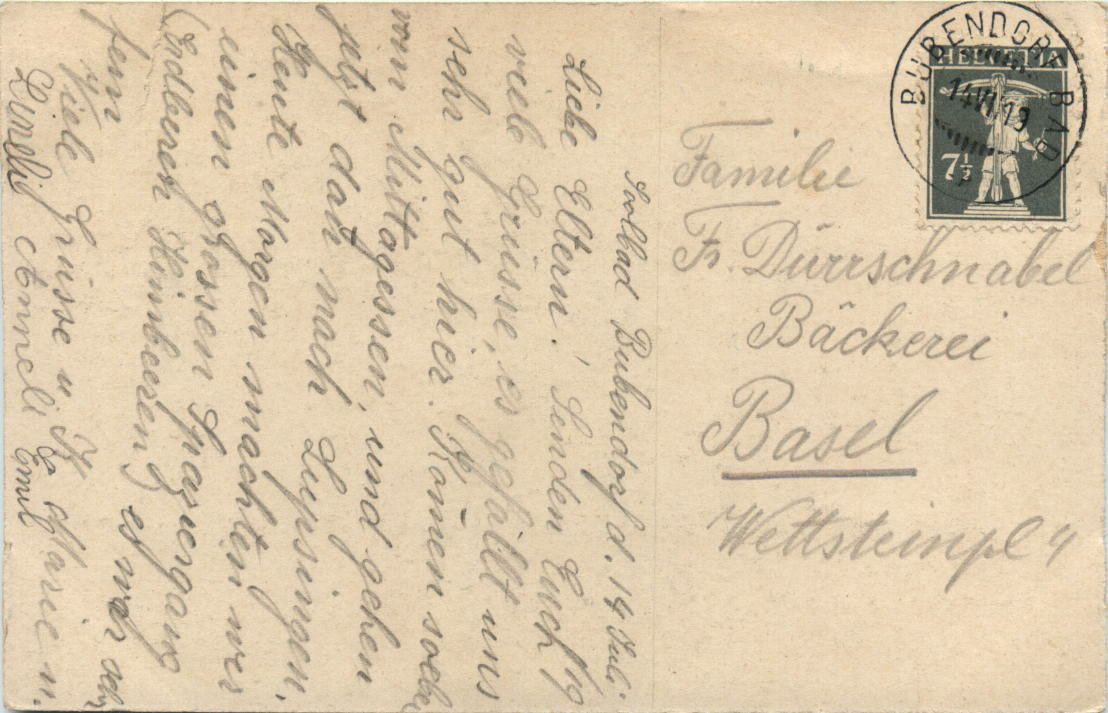 Soolbad Bubendorf d. 14 Juli
19
Liebe Eltern! Senden Euch
viele Grüsse, es gefällt uns
sehr gut hier. Komen soeben
vom Mittagessen, und gehen
jetzt dan nach Lupsingen.
Heute Morgen machten wir
einen grossen Spaziergang
Erdbeeren Himbeeren es war sehr
fein
Viele Grüsse u. Marie u.
Anneli & Emil
BUBENDORF BAD
14 VII 19
HELVETIA
7½
Familie
Fr. Dürrschnabel
Bäckerei
Basel
Wettsteinpl 4